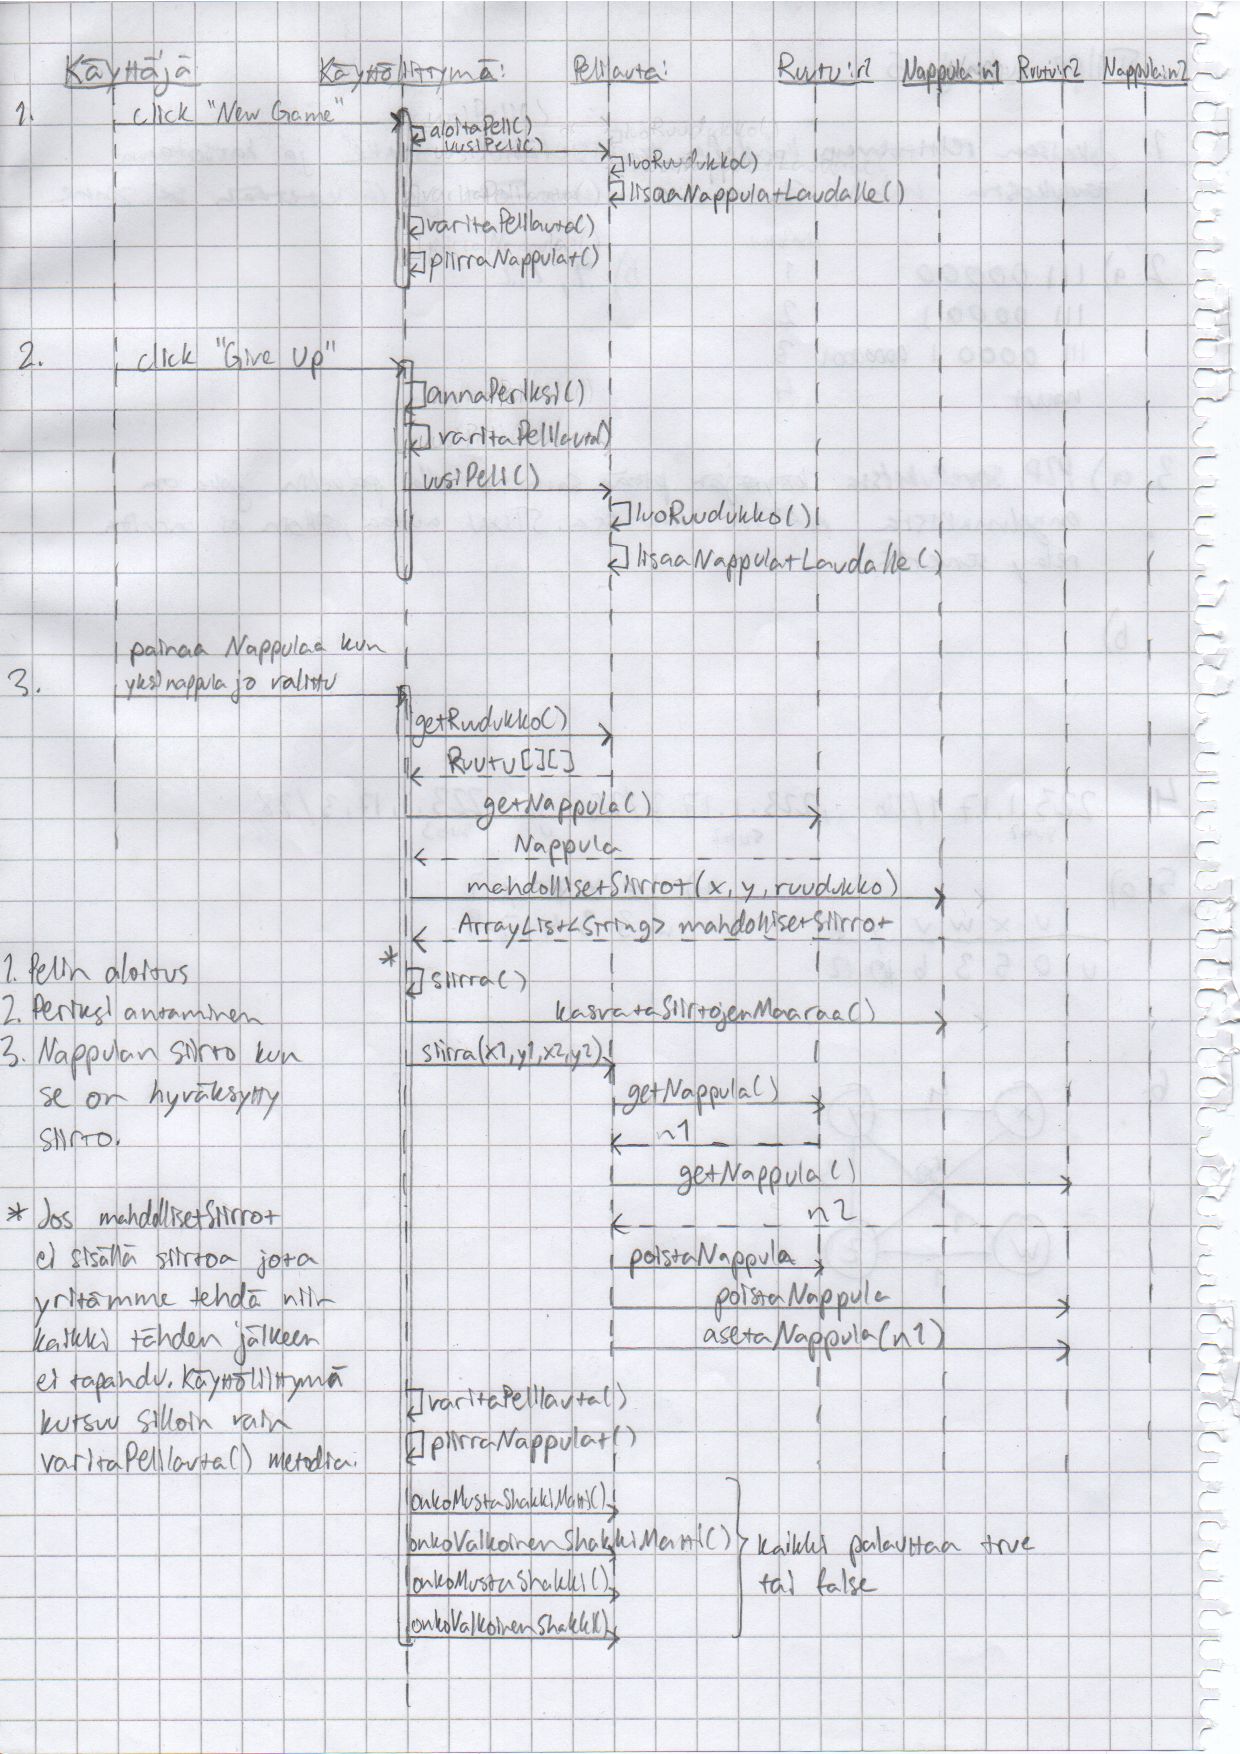 Käyttäjä Käyttöliittymä: Pelilauta: Ruutu:r1 Nappula:n1 Ruutu:r2 Nappula:n2
1. click "New Game"
aloitaPeli()
uusiPeli()
luoRuudukko()
lisaaNappulatLaudalle()
varitaPelilauta()
piirraNappulat()
2. click "Give Up"
annaPeriksi()
varitaPelilauta()
uusiPeli()
luoRuudukko()
lisaaNappulatLaudalle()
painaa Nappulaa kun
3. yksi nappula jo valittu
getRuudukko()
Ruutu[][]
getNappula()
Nappula
mahdollisetSiirrot(x, y, ruudukko)
ArrayList<String> mahdollisetSiirrot
*
siirra()
kasvataSiirtojenMaaraa()
siirra(x1,y1,x2,y2)
getNappula()
n1
getNappula()
n2
poistaNappula
poistaNappula
asetaNappula(n1)
varitaPelilauta()
piirraNappulat()
onkoMustaShakkiMatti()
onkoValkoinenShakkiMatti()
onkoMustaShakki()
onkoValkoinenShakki()
kaikki palauttaa true
tai false
1. Pelin aloitus
2. Periksi antaminen
3. Nappulan siirto kun
se on hyväksytty
siirto.
* Jos mahdollisetSiirrot
ei sisällä siirtoa jota
yritämme tehdä niin
kaikki tähden jälkeen
ei tapahdu. Käyttöliittymä
kutsuu silloin vain
varitaPelilauta() metodia.